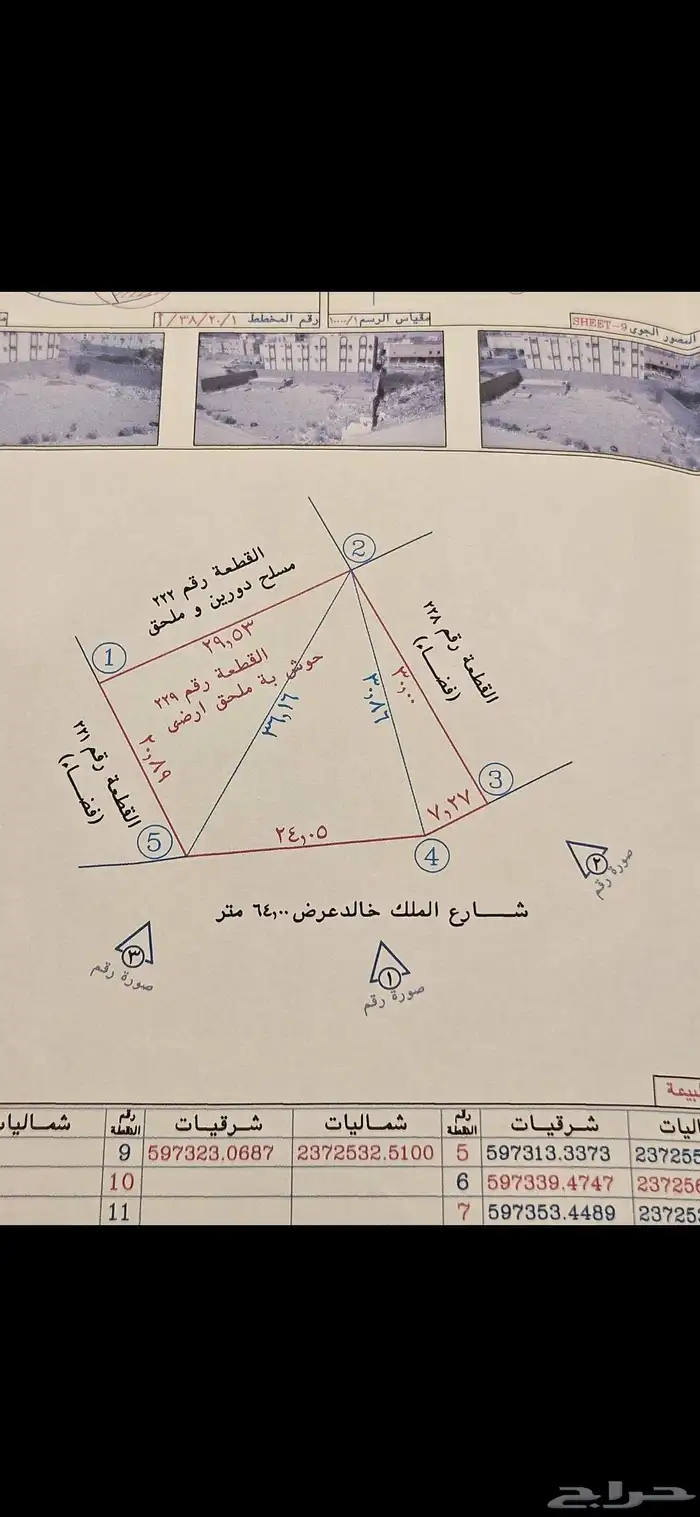 رقم المخطط ١/٣٨/٢٠/أ
مقياس الرسم ١/١٠٠٠
المصور الجوى SHEET-9
2
القطعة رقم ٢٢٢
مسلح دورين و ملحق
٢٩,٥٣
1
القطعة رقم ٢٢٩
حوش بة ملحق ارضى
القطعة رقم ٢٢٨
(فضــاء)
٣٠,٠٠
٣٠,٨٦
٣٦,١٦
٢٠,٨٩
القطعة رقم ٢٢١
(فضــاء)
3
٧,٢٧
٢٤,٠٥
5
4
شــارع الملك خالدعرض ٦٤,٠٠ متر
٢
صورة رقم
٣
صورة رقم
١
صورة رقم
شرقيات رقم النقطة شماليات شرقيات رقم النقطة
597313.3373 5 2372532.5100 597323.0687 9
597339.4747 6 10
597353.4489 7 11
حراج